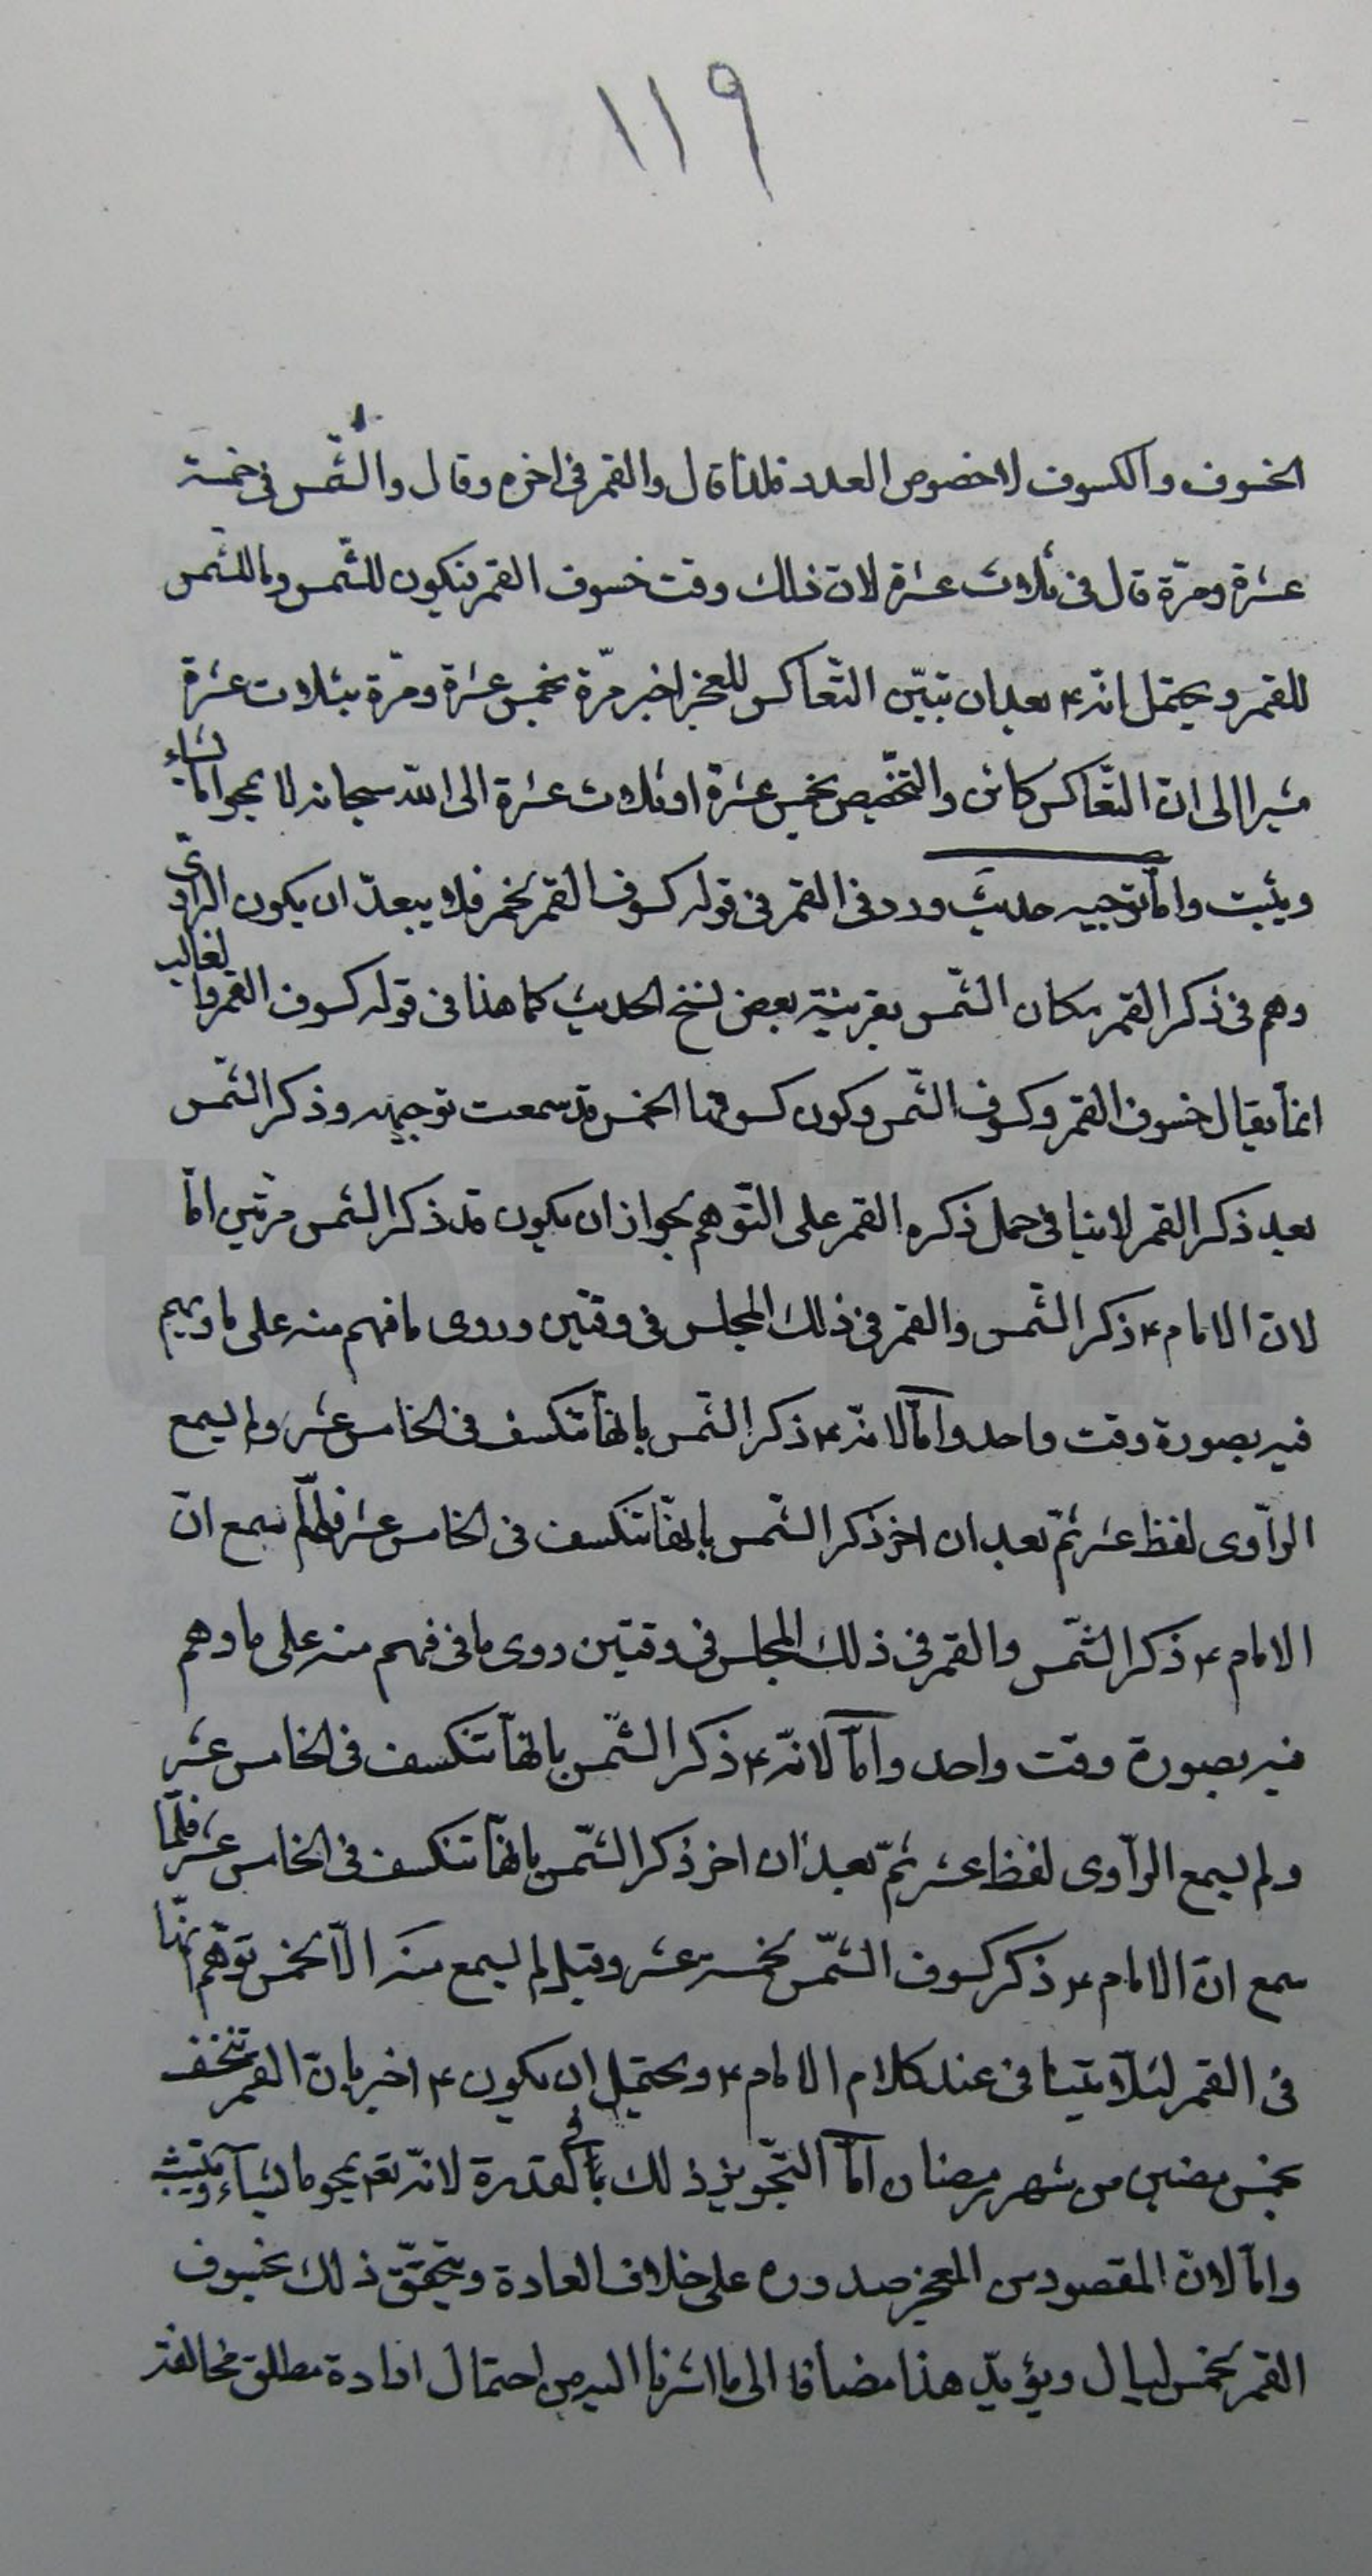 ١١٩
الخسوف والكسوف لا خصوص العدد فلذا قال والقمر فى اخره وقال والشّمس فى خمسة
عشرة ومرّة قال فى ثلاث عشرة لانّ ذلك وقت خسوف القمر فيكون للشّمس وما للشّمس
للقمر ويحتمل انّه ع بعد ان تبيّن التّعاكس للعجز اخبر مرّة بخمس عشرة ومرّة بثلاث عشرة
مشيرا الى انّ التّعاكس كائن والتخصيص بخمس عشرة او ثلاث عشرة الى اللّه سبحانه لما يمحوا ما يشاء
ويثبت وامّا توجيه حديث ورد فى القمر فى قوله كسوف القمر بخمس فلا يبعد ان يكون الرّاوى
وهم فى ذكر القمر مكان الشّمس بقرينة بعض نسخ الحديث كما هذا فى قوله كسوف القمر والغالب
انّما يقال خسوف القمر وكسوف الشّمس وكون كسوفها الخمس قد سمعت توجيهه وذكر الشّمس
بعد ذكر القمر لا ينافى حمل ذكره القمر على التّوهم بجواز ان يكون قد ذكر الشمس مرّتين امّا
لانّ الامام ع ذكر الشّمس والقمر فى ذلك المجلس فى وقتين وروى ما فهم منه على ما ويهم
فيه بصورة وقت واحد وامّا لانّه ع ذكر الشّمس بانّها تنكسف فى الخامس عشر ولم يسمع
الرّاوى لفظ عشر ثمّ بعد ان اخر ذكر الشّمس بانّها تنكسف فى الخامس عشر فلمّا سمع انّ
الامام ع ذكر الشّمس والقمر فى ذلك المجلس فى وقتين روى ما فى فهم منه على ما وهم
فيه بصورة وقت واحد وامّا لانّه ع ذكر الشّمس بانّها تنكسف فى الخامس عشر
ولم يسمع الرّاوى لفظ عشر ثمّ بعد ان اخر ذكر الشّمس بانّها تنكسف فى الخامس عشر فلمّا
سمع انّ الامام ع ذكر كسوف الشّمس بخمسة عشر وقبل لم يسمع منه الّا بخمس توهّم انّها
فى القمر لئلّا يتنافى عند كلام الامام ع ويحتمل ان يكون ع اخبر بانّ القمر تنخسف
بخمس مضين من شهر رمضان امّا التّجويز ذلك بالقدرة لانّه تعم يمحو ما يشآء ويثبت
وامّا لانّ المقصود من المعجز صدوره على خلاف العادة ويتحقّق ذلك بخسوف
القمر بخمس ليال ويؤيّد هذا مضافا الى ما اشرنا اليه من احتمال افادة مطلق مخالفة